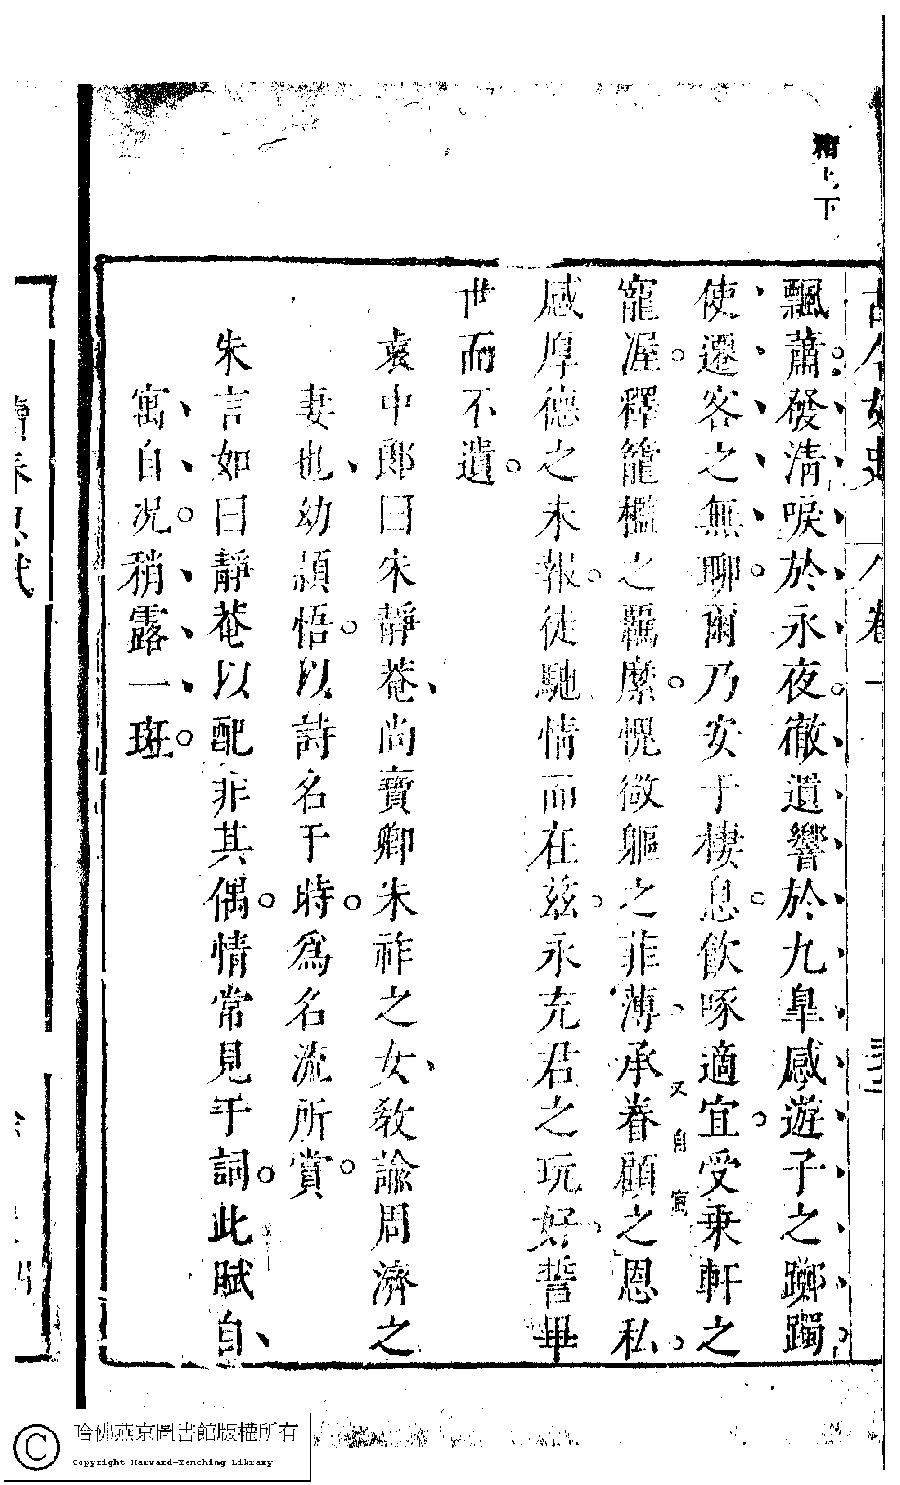 精上下
古今女史 卷一
飄蕭發淸唳於永夜徹遺響於九臯感遊子之躑躅
使遷客之無聊爾乃安于棲息飮啄適宜受乗軒之
寵渥釋籠檻之羈縻愧微軀之菲薄承眷顧之恩私
又自寓
感厚德之未報徒馳情而在兹永充君之玩好誓畢
世而不遺
袁中郎曰朱靜菴尚寶卿朱祚之女敎諭周濟之
妻也幼頴悟以詩名于時爲名流所賞
朱言如曰靜菴以配非其偶情常見于詞此賦自
寓自况稍露一斑
春思賦
哈佛燕京圖書館版權所有
Copyright Harvard-Yenching Library